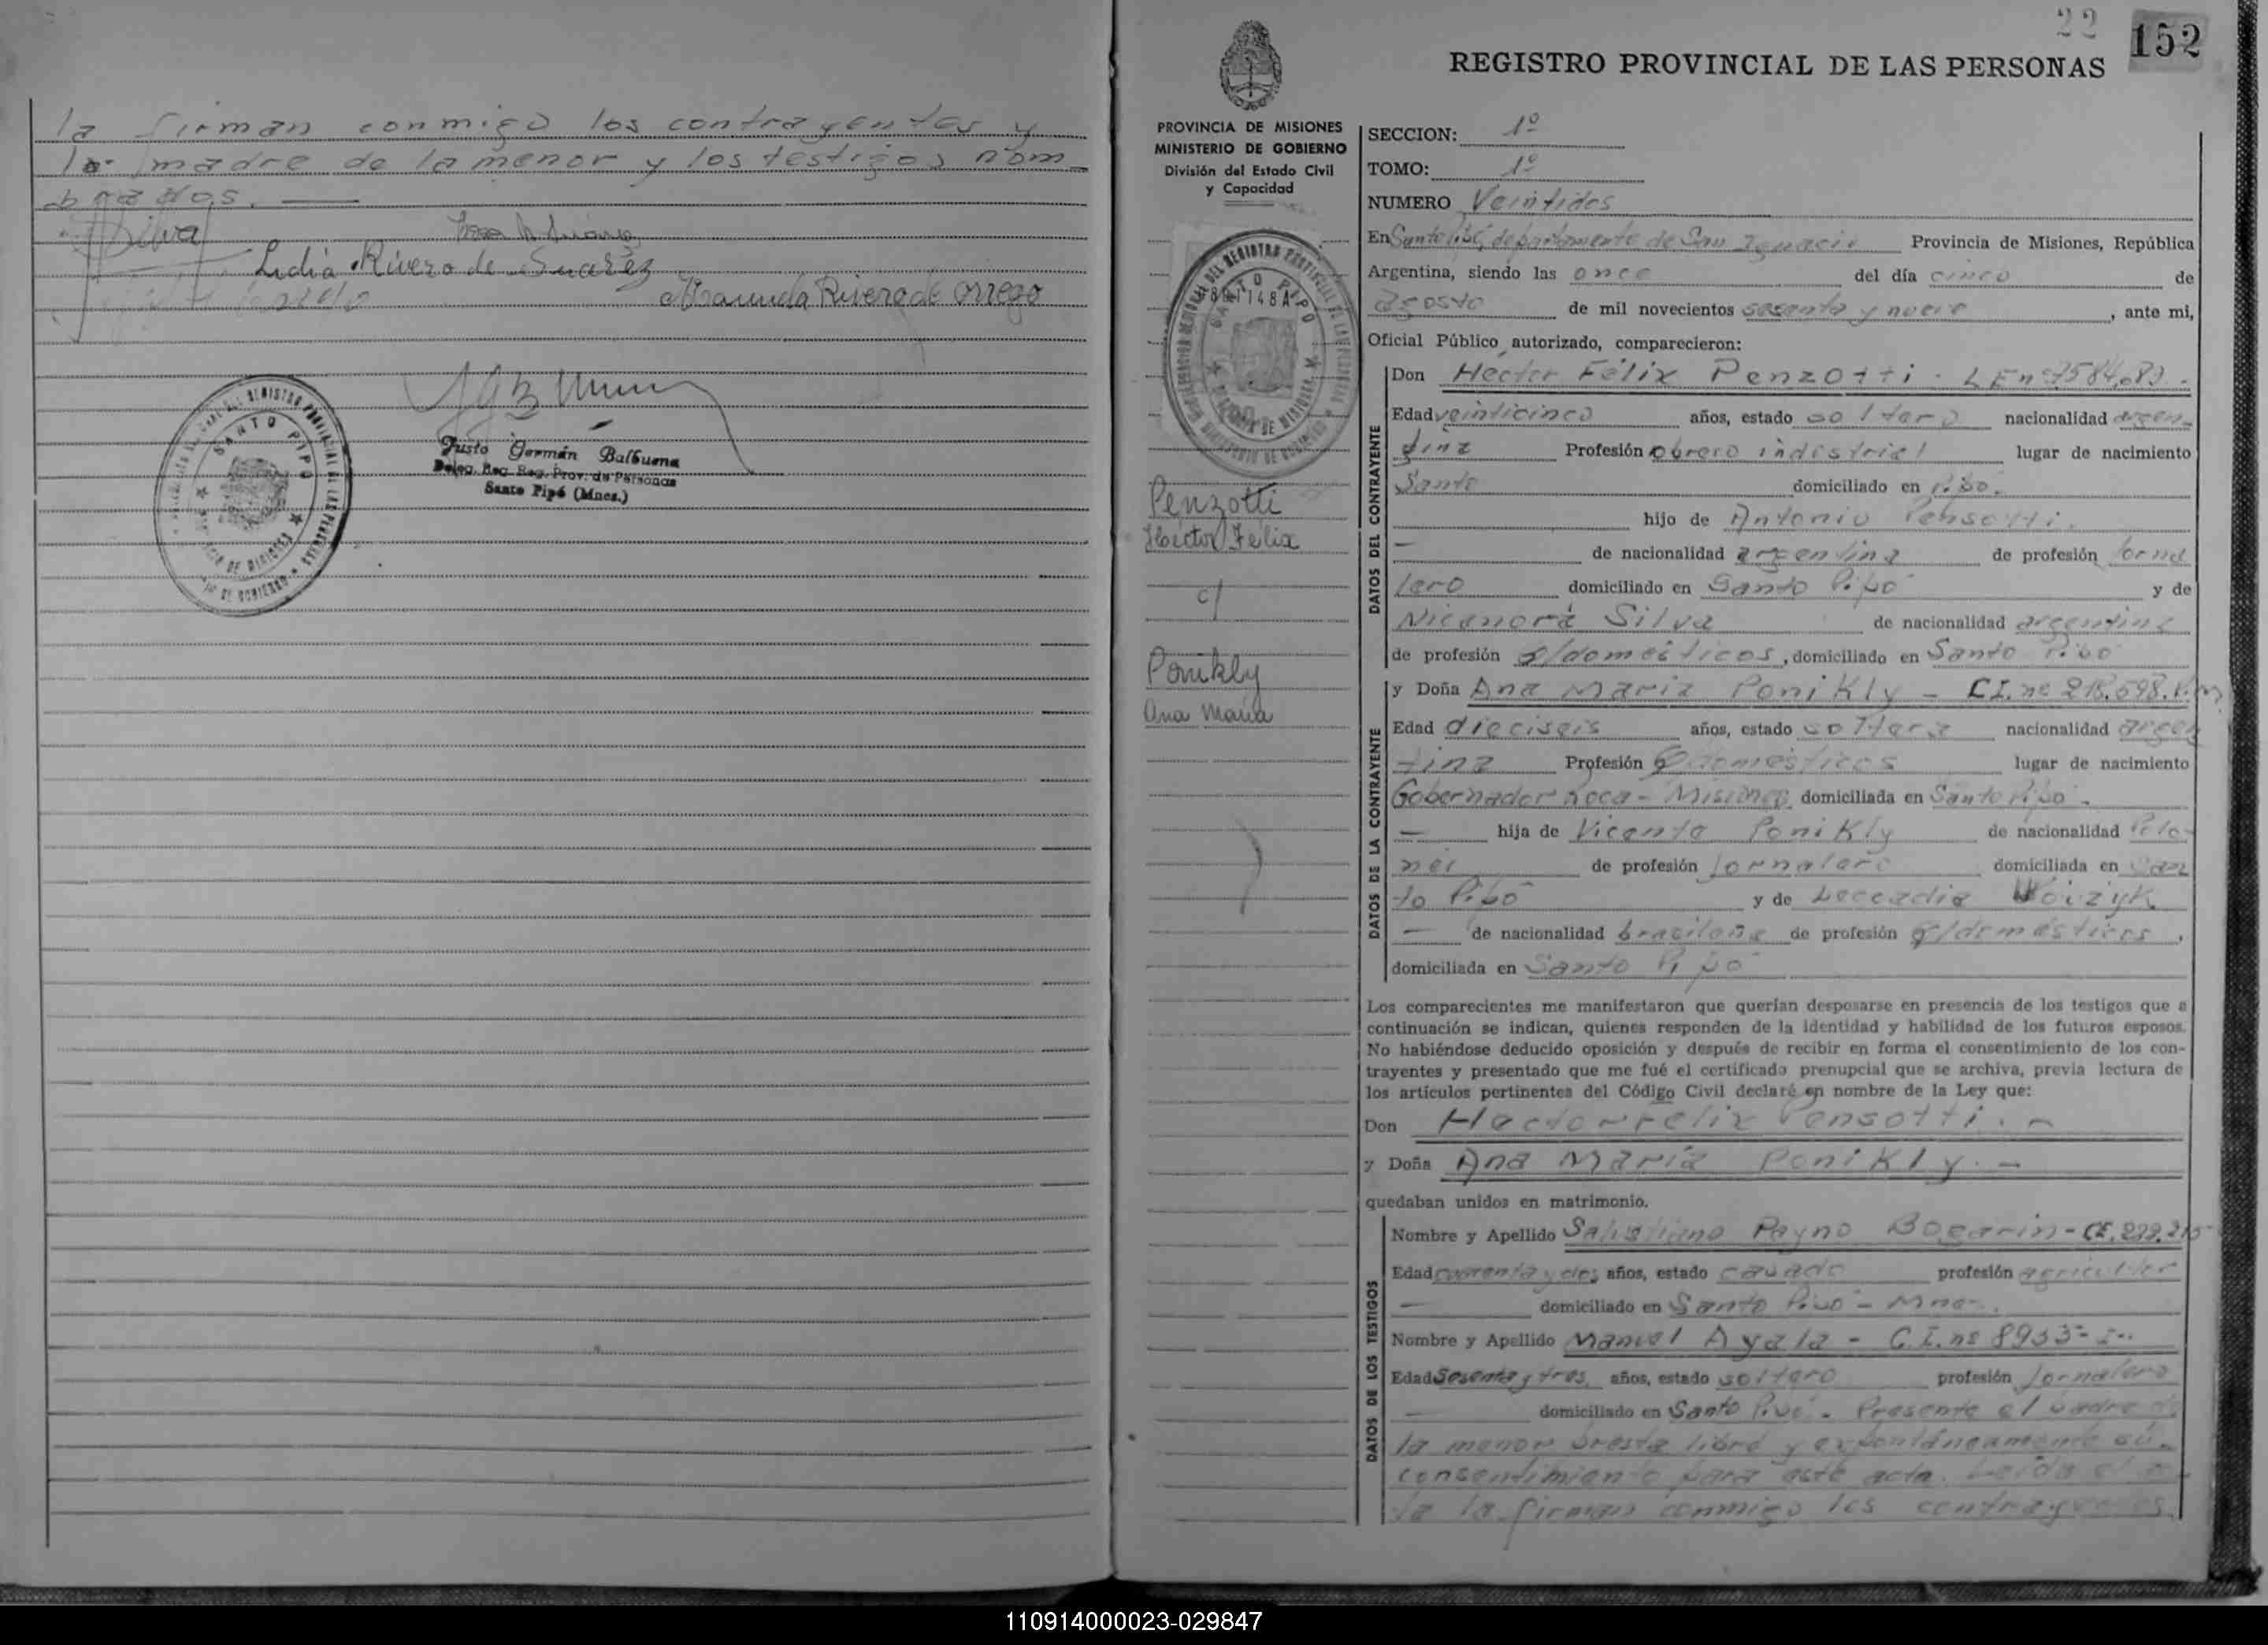 la firman conmigo los contrayentes y
la madre de la menor y los testigos nom-
brados.
Silva
Lidia Rivero de Suarez
Rivero de Orrego
Justo Germán Balbuena
Deleg. Reg. Prov. de Personas
Santo Pipó (Mnes.)
SANTO PIPO
22
152
REGISTRO PROVINCIAL DE LAS PERSONAS
PROVINCIA DE MISIONES
MINISTERIO DE GOBIERNO
División del Estado Civil
y Capacidad
SANTO PIPO
Penzotti
Héctor Félix
c/
Ponikly
Ana María
SECCION: 1º
TOMO: 1º
NUMERO Veintidos
En Santo Pipó, departamento de San Ignacio Provincia de Misiones, República
Argentina, siendo las once del día cinco de
agosto de mil novecientos sesenta y nueve, ante mi,
Oficial Público autorizado, comparecieron:
DATOS DEL CONTRAYENTE
Don Héctor Félix Penzotti - L E nº 7584.089.-
Edad veinticinco años, estado soltero nacionalidad argen-
tina Profesión obrero industrial lugar de nacimiento
Santo domiciliado en Pipo.
hijo de Antonio Pensotti.
— de nacionalidad argentina de profesión Jorna
lero domiciliado en Santo Pipó y de
Nicanora Silva de nacionalidad argentina
de profesión q/domésticos, domiciliado en Santo Pipó
DATOS DE LA CONTRAYENTE
y Doña Ana María Ponikly - C.I. nº 218.698.
Edad dieciseis años, estado soltera nacionalidad argen
tina Profesión q/domésticos lugar de nacimiento
Gobernador Roca - Misiones domiciliada en Santo Pipó.
— hija de Vicente Ponikly de nacionalidad Polo-
nés de profesión Jornalero domiciliada en San
to Pipó y de Leocadia Woizyk
— de nacionalidad brasileña de profesión q/domésticos,
domiciliada en Santo Pipó
Los comparecientes me manifestaron que querían desposarse en presencia de los testigos que a
continuación se indican, quienes responden de la identidad y habilidad de los futuros esposos.
No habiéndose deducido oposición y después de recibir en forma el consentimiento de los con-
trayentes y presentado que me fué el certificado prenupcial que se archiva, previa lectura de
los artículos pertinentes del Código Civil declaré en nombre de la Ley que:
Don Hector Felix Pensotti. -
y Doña Ana María Ponikly. -
quedaban unidos en matrimonio.
DATOS DE LOS TESTIGOS
Nombre y Apellido Payno Bogarin -
Edad cuarenta y dos años, estado casado profesión agricultor
— domiciliado en Santo Pipó - Mnes.
Nombre y Apellido Manuel Ayala - C.I. nº 8933-
Edad Sesenta y tres, años, estado soltero profesión Jornalero
— domiciliado en Santo Pipó. Presente el padre de
la menor presta libre y expontáneamente su
consentimiento para este acto. Leída el ac-
ta la firman conmigo los contrayentes
110914000023-029847